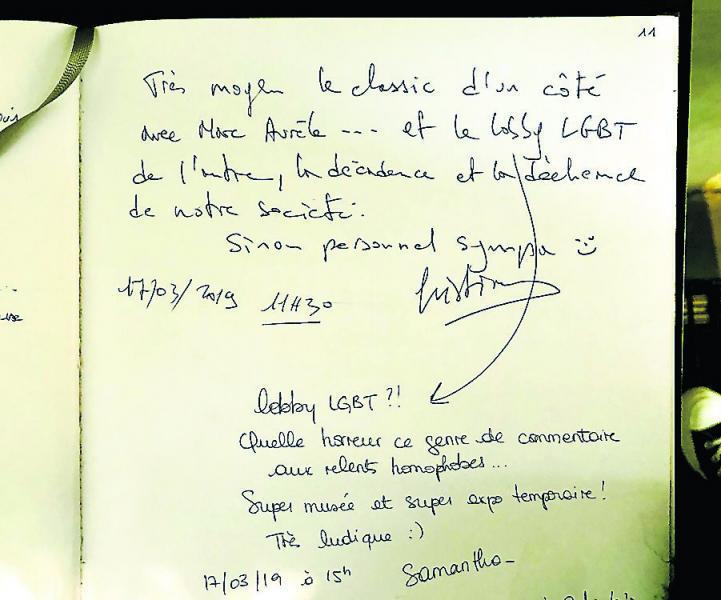 11
Très moyen le classic d'un côté
avec Marc Aurèle --- et le lobby LGBT
de l'autre, la décadence et la déchéance
de notre société.
Sinon personnel sympa :)
17/03/2019 11H30
lobby LGBT ?!
Quelle horreur ce genre de commentaire
aux relents homophobes...
Super musée et super expo temporaire !
Très ludique :)
17/03/19 à 15h Samantha